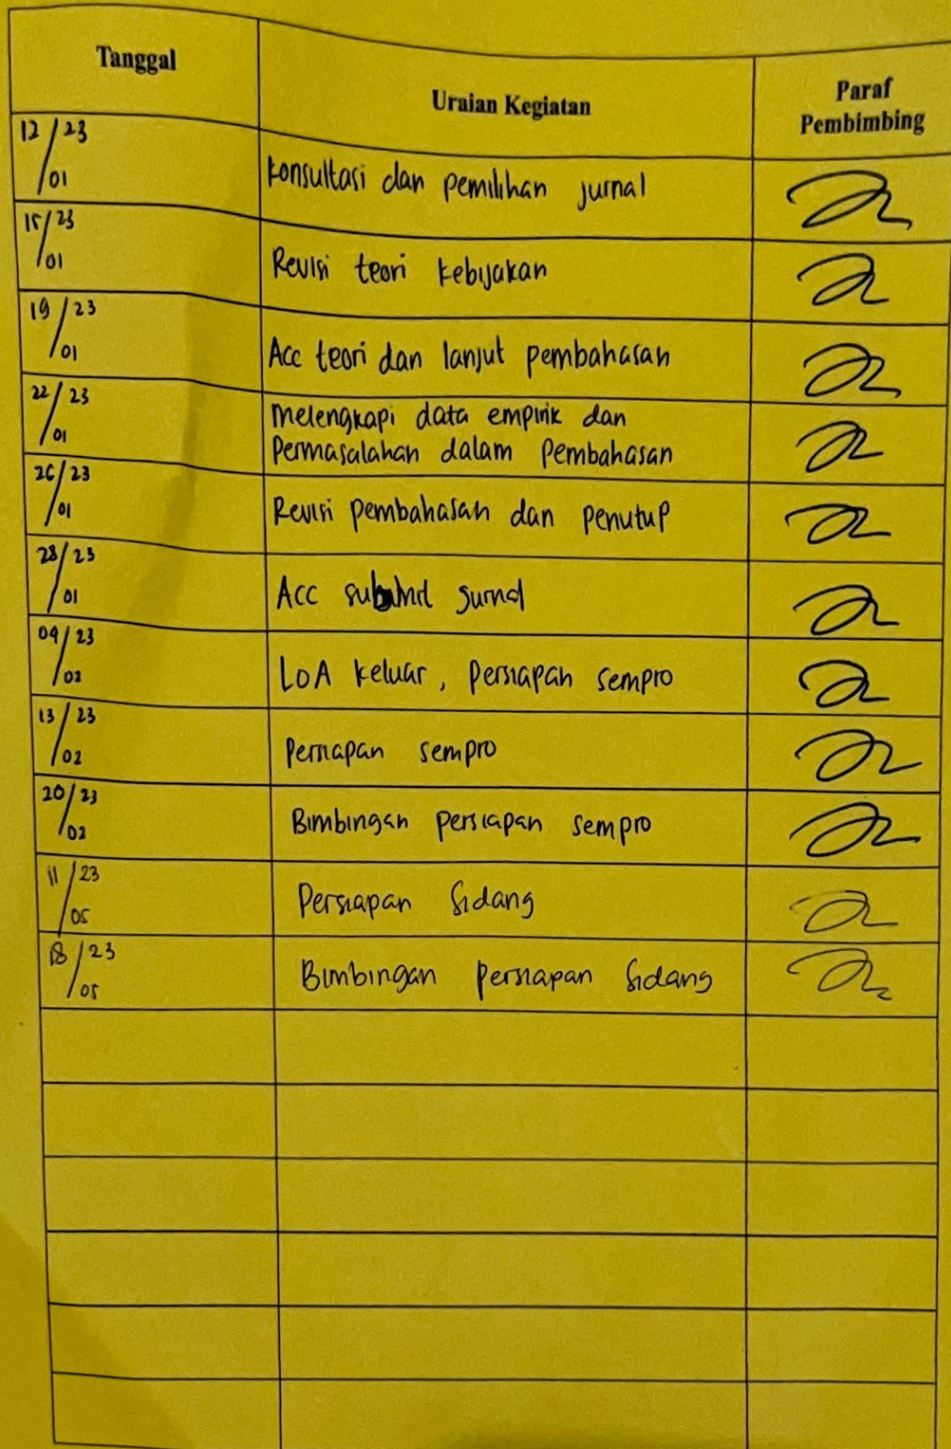 Tanggal
Uraian Kegiatan
Paraf
Pembimbing
12/23
/01
Konsultasi dan pemilihan jurnal
15/23
/01
Revisi teori kebijakan
19/23
/01
Acc teori dan lanjut pembahasan
22/23
/01
Melengkapi data empirik dan
Permasalahan dalam Pembahasan
26/23
/01
Revisi pembahasan dan penutup
28/23
/01
Acc submit
09/23
/02
LOA keluar, Persiapan sempro
13/23
/02
Persiapan sempro
20/23
/02
Bimbingan persiapan sempro
11/23
/05
Persiapan Sidang
18/23
/05
Bimbingan Persiapan Sidang